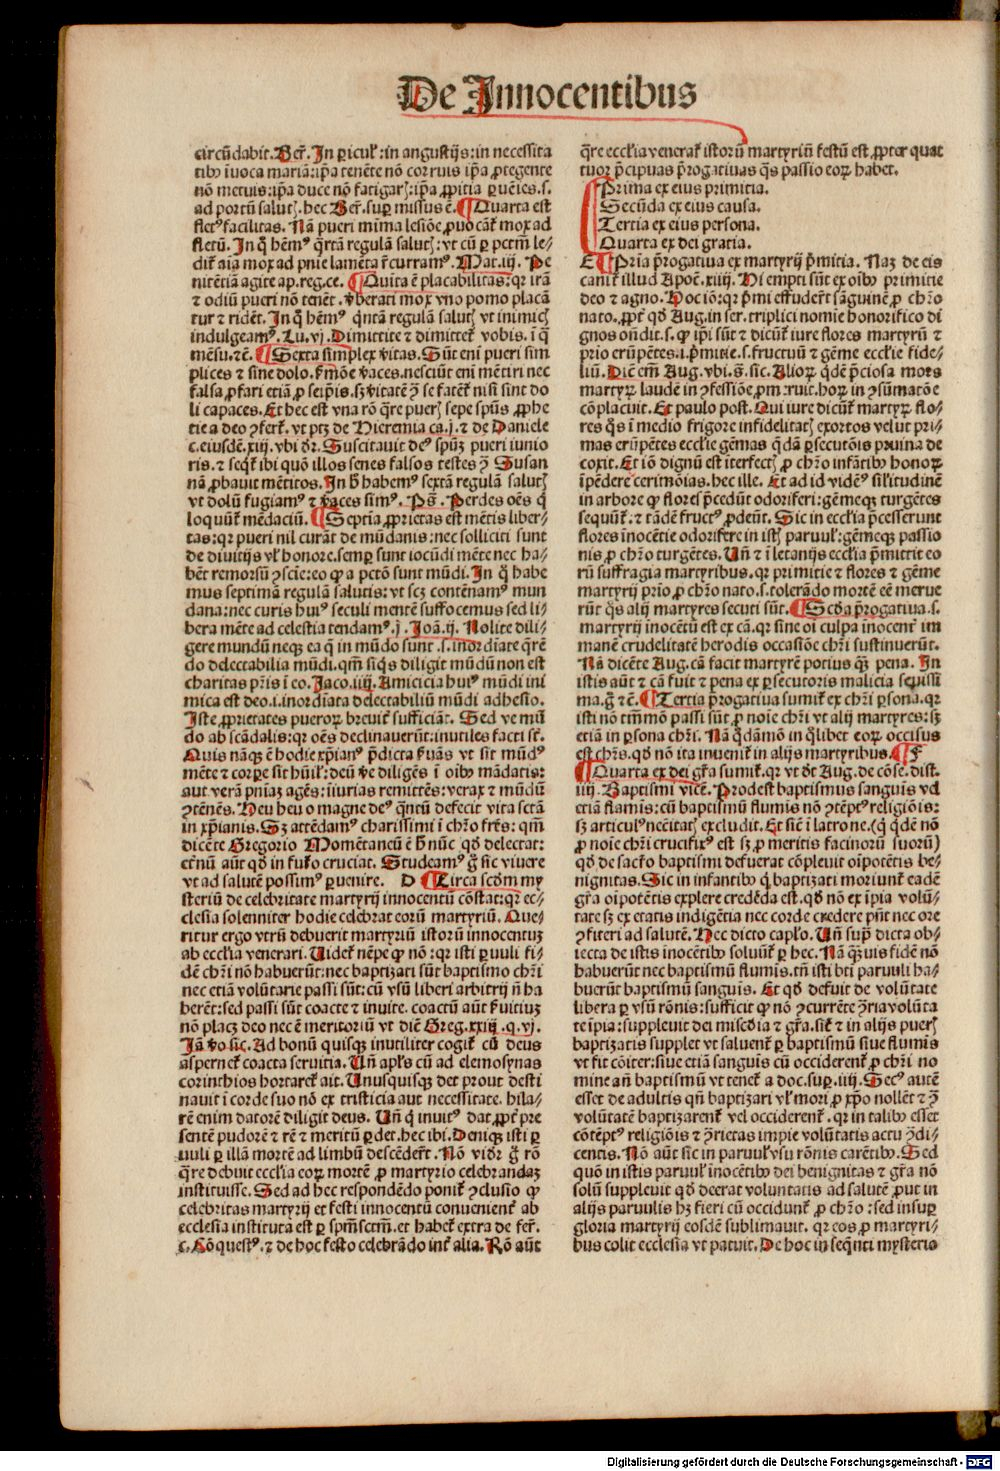 De Innocentibus
circũdabit. Ber̃. In ꝑicul̕: in angustijs: in necessita
tibꝰ iuoca mariã: ip̃a tenẽte nõ corruis ip̃a ꝓtegente
nõ metuis: ip̃a duce nõ fatigarꝭ: ip̃a ꝓpitia ꝑuẽies. s.
ad portũ salutꝭ. hec Ber̃. suꝑ missus ẽ. Quarta est
fletꝰ facilitas. Nã pueri mima lesiõe ꝓuocãt̃ mox ad
fletũ. In q̃ hẽmꝰ q̃rtã regulã salutꝭ: vt cũ ꝑ pctm̃ le-
dit̃ aĩa mox ad pnie lamẽta r̃curramꝰ. Mat. iij. Pe
nitẽtiã agite ap. reg. ce. Quĩta ẽ placabilitas: qꝛ irã
⁊ odiũ pueri nõ tenẽt. v̾berati mox vno pomo placã
tur ⁊ ridẽt. In q̃ hẽmꝰ q̃ntã regulã salutꝭ vt inimicꝭ
indulgeamꝰ. Lu. vj. Dimittite ⁊ dimittet̃ vobis. i q̃
mẽsu. ⁊ẽ. Sexta simplex v̾itas. Sũt eni pueri sim
plices ⁊ sine dolo. s̾mõe v̾aces. nesciũt eni mẽtiri nec
falsa ꝓfari etiã ꝓ seip̃is. sꝫ v̾itatẽ ꝯ̃ se fatẽt̃ nisi sint do
li capaces. Et hec est vna rõ q̃re puerꝭ sepe spũs ꝓphe
tie a deo ꝯfert̃. vt ptꝫ de Hieremia ca. j. ⁊ de Daniele
c. eiusdẽ. xiij. vbi dr̃. Suscitauit deꝰ spũꝫ pueri iunio
ris. ⁊ seq̃t̃ ibi quõ illos senes falsos testes ꝯ̃ Susan
nã ꝓbauit mẽtitos. In h̾ habemꝰ sextã regulã salutꝭ
vt dolũ fugiamꝰ ⁊ v̾aces simꝰ. Ps̃. Perdes oẽs q̃
loquũt̃ mẽdaciũ. Septĩa ꝓprietas est mẽtis liber-
tas: qꝛ pueri nil curãt de mũdanis: nec solliciti sunt
de diuitijs vl̕ honore. semꝑ sunt iocũdi mẽte nec ha-
bẽt remorsũ ꝯscie: eo ꝙ a pctõ sunt mũdi. In q̃ habe
mus septimã regulã salutis: vt scꝫ contẽnamꝰ mun
dana: nec curis huiꝰ seculi mentẽ suffocemus sed li-
bera mẽte ad celestia tendamꝰ. j. Joã. ij. Nolite dili-
gere mundũ neqꝫ ea q̃ in mũdo sunt. s. inordĩate q̃rẽ
do delectabilia mũdi. qm̃ siq̃s diligit mũdũ non est
charitas pr̃is ĩ eo. Jaco. iiij. Amicicia huiꝰ mũdi ini
mica est deo. i. inordĩata delectabiliũ mũdi adhesio.
Iste ꝓprietates pueroꝝ breuit̃ sufficiãt. Sed ve mũ
do ab scãdalis: qꝛ oẽs declinauerũt: inutiles facti st̃.
Quis nãqꝫ ẽ hodie xp̃ianꝰ p̃dicta s̾uãs vt sit mũdꝰ
mẽte ⁊ corꝑe sit hũil̕: deũ v̾e diligẽs ĩ oĩbꝰ mãdatis:
aut verã pniaꝫ agẽs: ĩiurias remittẽs: verax ⁊ mũdũ
ꝯtẽnẽs. Heu heu o magne deꝰ q̃ntũ defecit vita sctã
in xp̃ianis. Sꝫ attẽdamꝰ charissimi ĩ chr̃o fr̃es: qm̃
dicẽte Gregorio Momẽtaneũ ẽ h̾ nũc qd̾ delectat:
et̾nũ aũt qd̾ in futo cruciat. Studeamꝰ g̃ sic viuere
vt ad salutẽ possimꝰ ꝑuenire. D Circa scd̾m my
steriũ de celebritate martyrij innocentũ cõstat: qꝛ ec-
clesia solenniter hodie celebrat eorũ martyriũ. Que-
ritur ergo vtrũ debuerit martyriũ istorũ innocentuꝫ
ab ecclia venerari. Uidet̃ nẽpe ꝙ nõ: qꝛ isti ꝑuuli fi-
dẽ chr̃i nõ habuerũt: nec baptizati sũt baptismo chr̃i
nec etiã volũtarie passi sũt: cũ vsũ liberi arbitrij ñ ha
berẽt: sed passi sũt coacte ⁊ inuite. coactũ aũt s̾uitiuꝫ
nõ placꝫ deo nec ẽ meritoriũ vt diẽ Greg. xxiij. q. vj.
Jã v̾o sic. Ad bonũ quisqꝫ inutiliter cogit̃ cũ deus
aspernet̃ coacta seruitia. Uñ apl̕s cũ ad elemosynas
corinthios hortaret̃ ait. Unusquisqꝫ det prout desti
nauit ĩ corde suo nõ ex tristicia aut necessitate. hila-
rẽ enim datorẽ diligit deus. Uñ q̃ inuitꝰ dat, ꝓpt̃ pre
sentẽ pudorẽ ⁊ rẽ ⁊ meritũ ꝑdet. hec ibi. Deniqꝫ isti ꝑ
uuli ꝑ illã mortẽ ad limbũ descẽder̃t. Nõ vidr̃ g̃ rõ
q̃re debuit ecclia eoꝝ mortẽ ꝓ martyrio celebrandaꝫ
instituisse. Sed ad hec respondẽdo ponit̃ ꝯclusio ꝙ
celebritas martyrij et festi innocentũ conuenient̃ ab
ecclesia instituta est ꝑ spm̃sctm̃. et habet̃ extra de fer̃.
c. Cõquestꝰ. ⁊ de hoc festo celebrãdo int̃ alia. Rõ aũt
q̃re ecclia venerat̃ istorũ martyriũ ⁊ festũ est, ꝓpter quat
tuor p̃cipuas p̃rogatiuas q̃s passio eoꝝ habet.
Prima ex eius primitia.
Secũda ex eius causa.
Tertia ex eius persona.
Quarta ex dei gratia.
E Prĩa p̃rogatiua ex martyrij p̃mitia. Naꝫ de eis
canit̃ illud Apoč. xiiij. Hi empti sũt ex oĩbꝰ primitie
deo ⁊ agno. Hoc iõ: qꝛ p̃mi effuder̃t sãguinẽ ꝓ chr̃o
nato. ꝓpt̃ qd̾ Aug. in ser. triplici nomie honorifico di
gnos oñdit. s. ꝙ ip̃i sũt ⁊ dicũt̃ iure flores martyrũ ⁊
prio erũpẽtes: i. p̃mitie. s. fructuũ ⁊ gẽme ecclie fide-
liũ. Diẽ em̃ Aug. vbi. s̃. sic. Alioꝝ q̃dẽ p̃ciosa mors
martyꝝ laudẽ in ꝯfessiõe ꝓmeruit. hoꝝ in ꝯsũmatõe
cõplacuit. Et paulo post. Qui iure dicũt̃ martyꝝ flo-
res q̃s ĩ medio frigore infidelitatꝭ exortos velut pri-
mas erũpẽtes ecclie gẽmas q̃dã ꝑsecutõis pruina de
coxit. Et iõ dignũ est ĩterfectꝭ ꝓ chr̃o infãtibꝰ honoꝝ
ĩpẽdere cerimõias. hec ille. Et ad id vidẽꝰ sil̕itudinẽ
in arbore ꝙ flores p̃cedũt odoriferi: gẽmeqꝫ turgẽtes
sequũt̃. ⁊ tãdẽ fructꝰ ꝓdeũt. Sic in ecclia p̃cesserunt
flores inocẽtie odorifere in istꝭ paruul̕: gẽmeqꝫ passio
nis ꝓ chr̃o turgẽtes. Uñ ⁊ ĩ letanijs ecclia p̃mittit eo
rũ suffragia martyribus. qꝛ primitie ⁊ flores ⁊ gẽme
martyrij prĩo ꝓ chr̃o nato. s. tolerãdo mortẽ eẽ merue
rũt q̃s alij martyres secuti sũt. Scd̾a p̃rogatiua. s.
martyrij inocẽtũ est ex cã. qꝛ sine oĩ culpa ĩnocent̃ im
manẽ crudelitatẽ herodis occasiõe chr̃i sustinuerũt.
Nã dicẽte Aug. cã facit martyrẽ potius q̃ꝫ pena. In
istis aũt ⁊ cã fuit ⁊ pena ex ꝑsecutoris malicia seuissi
ma. g̃ ⁊ẽ. Tertia p̃rogatiua sumit̃ ex chr̃i ꝑsona. qꝛ
isti nõ tm̃mõ passi sũt ꝓ noĩe chr̃i vt alij martyres: sꝫ
etiã in ꝑsona chr̃i. Nã q̃dãmõ in q̃libet eoꝝ occisus
est chr̃s. qd̾ nõ ita inuenit̃ in alijs martyribus. F
Quarta ex dei gr̃a sumit̃. qꝛ vt dt̾ Aug. de cõse. dist.
iiij. Baptismi vicẽ. Prodest baptismus sanguis vel
etiã flamis: cũ baptismũ flumis nõ ꝯtẽptꝰ religiõis:
sꝫ articulꝰ necẽitatꝭ excludit. Et siẽ ĩ latrone. (q̃ q̃dẽ nõ
ꝓ noĩe chr̃i crucifixꝰ est sꝫ ꝓ meritis facinorũ suorũ)
qd̾ de sacr̃o baptismi defuerat cõpleuit oĩpotẽtis be-
nignitas. Sic in infantibꝰ q̃ baptizati moriunt̃ eadẽ
gr̃a oĩpotẽtis explere credẽda est. qd̾ nõ ex ĩpia volũ-
tate sꝫ ex etatis indigẽtia nec corde credere pñt nec ore
ꝯfiteri ad salutẽ. Hec dicto cap̃lo. Uñ suꝑ dicta ob-
iecta de istis inocẽtibꝰ soluũt̃ ꝑ hec. Nã q̃ꝫuis fidẽ nõ
habuerũt nec baptismũ flumis. tñ isti bti paruuli ha-
buerũt baptismũ sanguis. Et qd̾ defuit de volũtate
libera ꝑ vsũ rõnis: sufficit ꝙ nõ ꝯcurrẽte ꝯ̃ria volũta
te ĩpia: suppleuit dei miscd̾ia ⁊ gr̃a. sic̃ ⁊ in alijs puerꝭ
baptizatis supplet vt saluent̃ ꝑ baptismũ siue flumis
vt fit cõiter: siue etiã sanguis cũ occiderent̃ ꝓ chr̃i no
mine añ baptismũ vt tenet̃ a doc. suꝑ. iiij. Secꝰ autẽ
esset de adultis qñ baptizari vl̕ mori ꝓ xp̃o nollẽt ⁊ ꝯ̃
volũtatẽ baptizarent̃ vel occiderent̃. qꝛ in talibꝰ esset
cõtẽptꝰ religiõis ⁊ ꝯ̃rietas impie volũtatis actu ꝯ̃di-
centis. Nõ aũt sic in paruul̕ vsu rõnis carẽtibꝰ. Sed
quõ in istis paruul̕ ĩnocẽtibꝰ dei benignitas ⁊ gr̃a nõ
solũ suppleuit qd̾ deerat voluntatis ad salutẽ ꝓut in
alijs paruulis hꝫ fieri cũ occidunt̃ ꝓ chr̃o: sed insuꝑ
gloria martyrij eosdẽ sublimauit. qꝛ eos ꝓ martyri-
bus colit ecclesia vt patuit. De hoc in seq̃nti mysterio
Digitalisierung gefördert durch die Deutsche Forschungsgemeinschaft - DFG